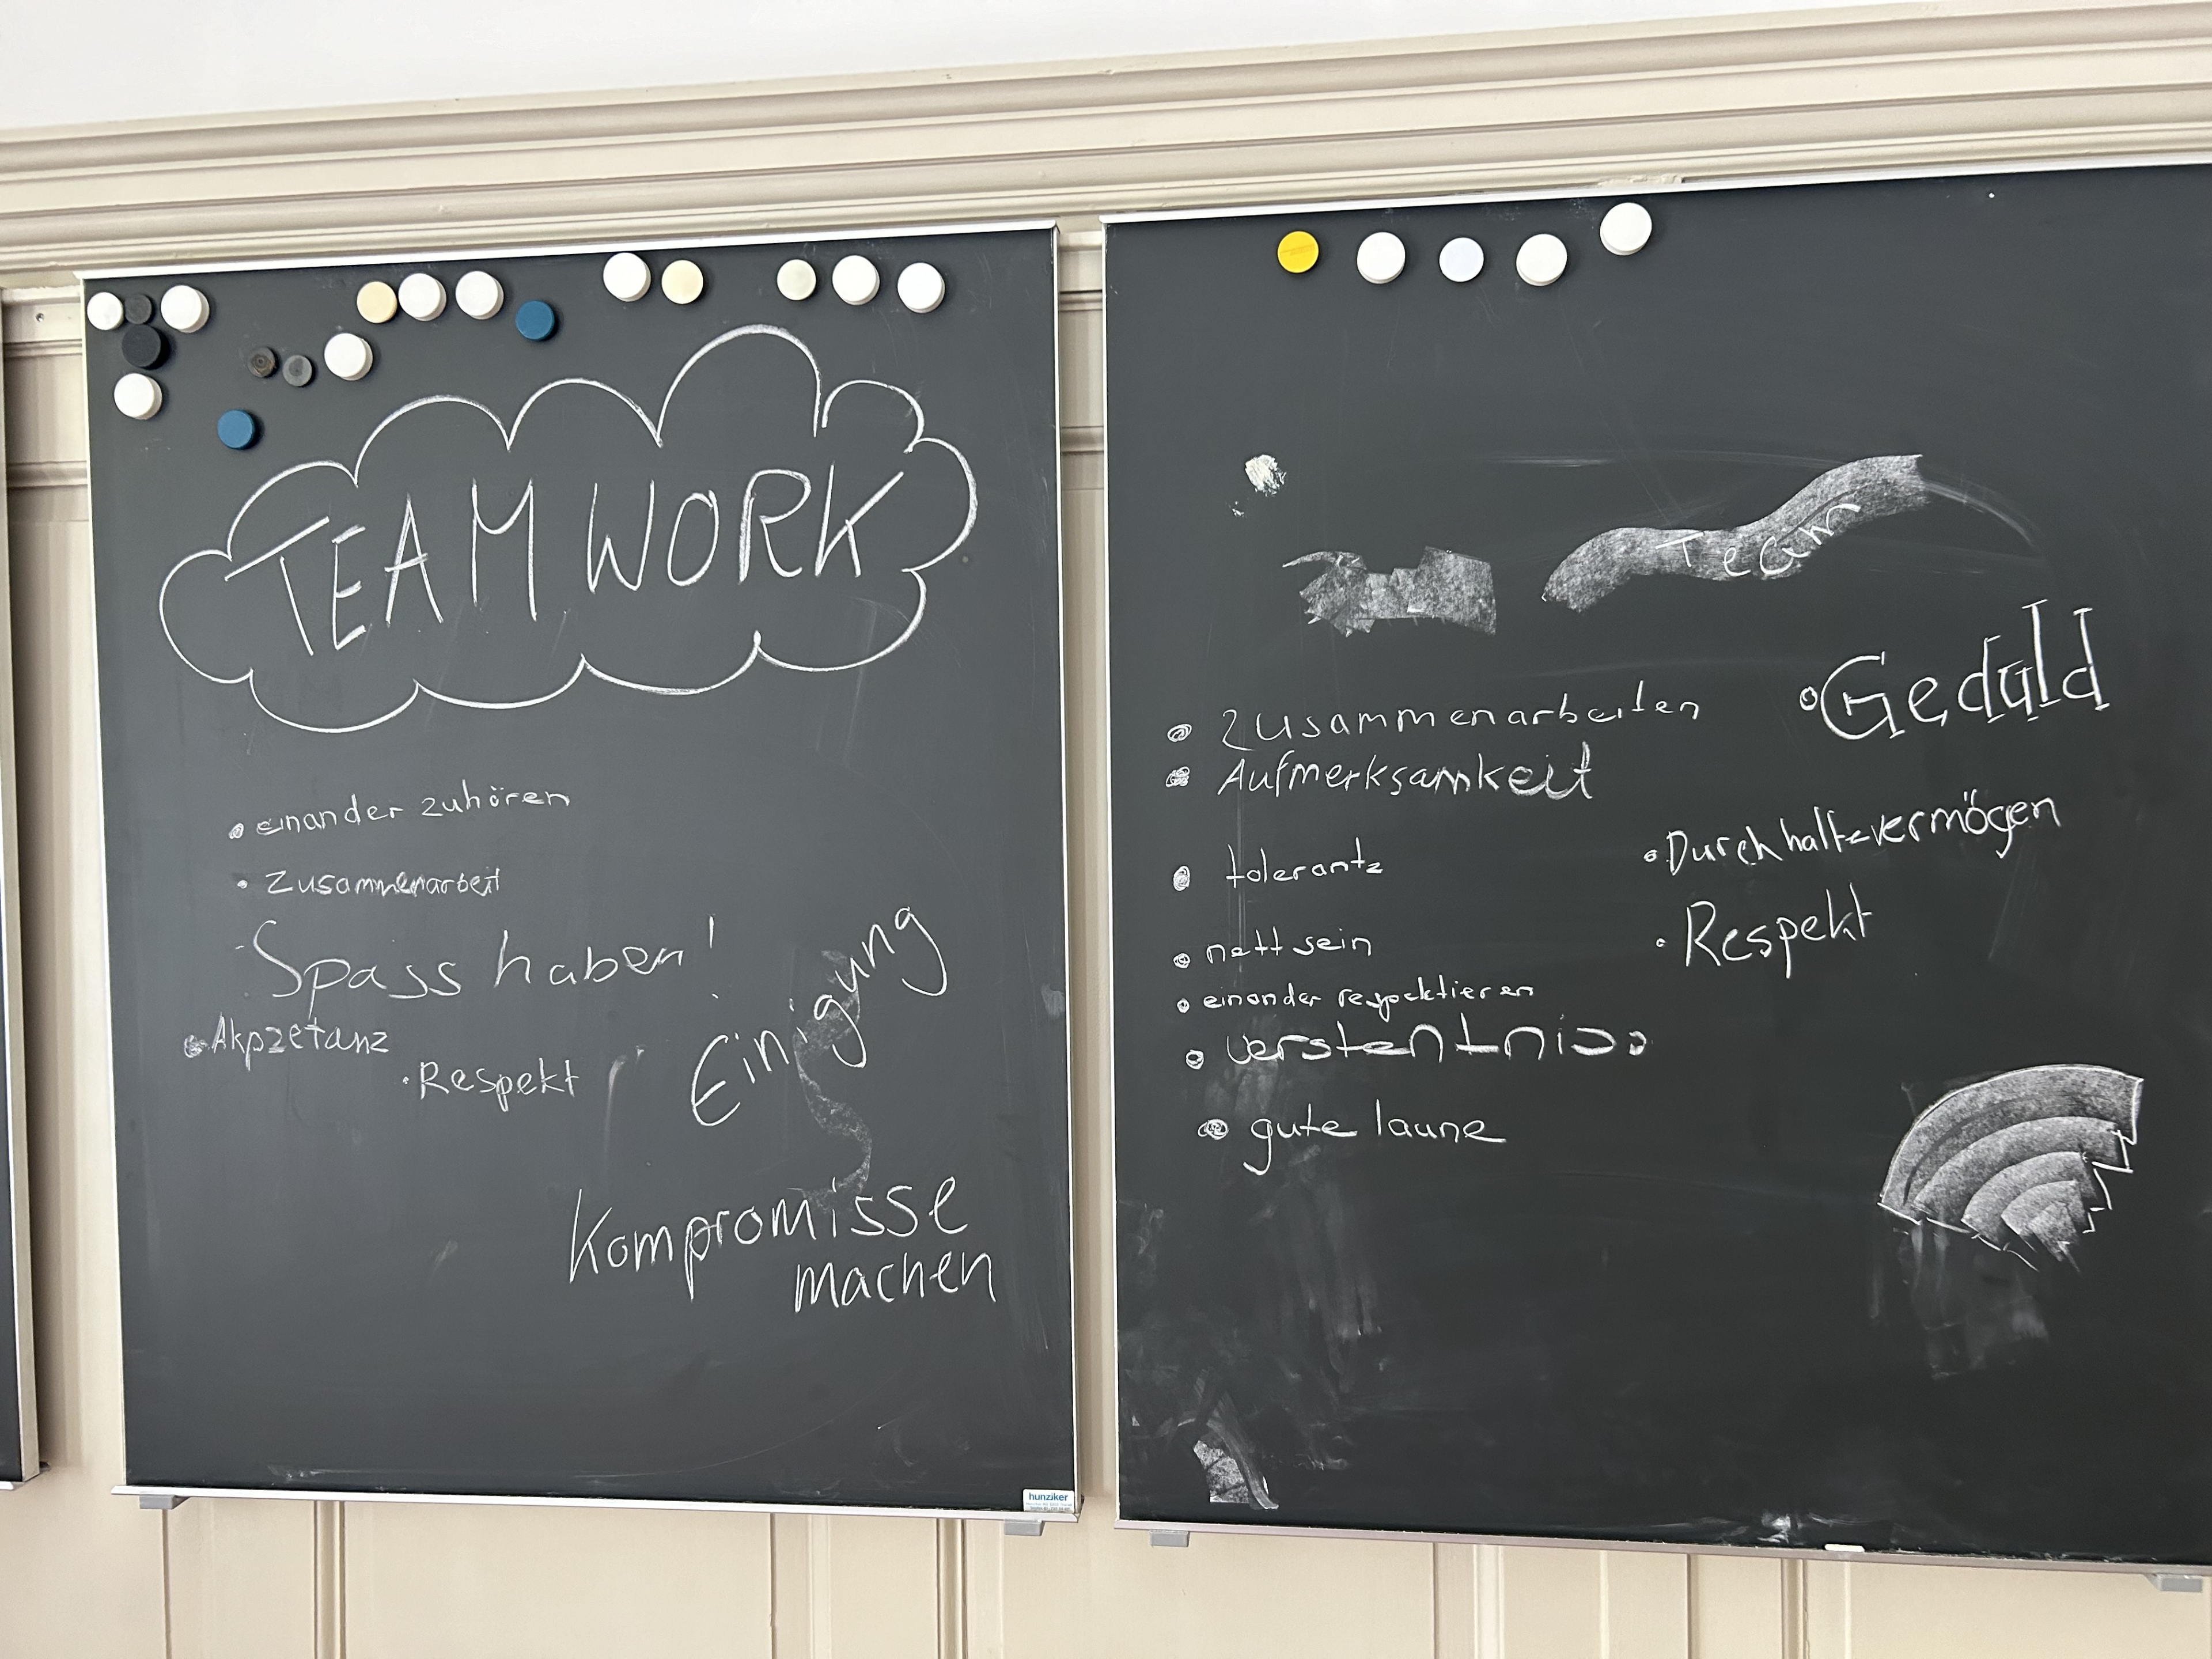 TEAM WORK
• einander zuhören
• Zusammenarbeit
- Spass haben!
• Akpzetanz
• Respekt
Einigung
Kompromisse
machen
hunziker
Team
• Geduld
• Zusammenarbeiten
• Aufmerksamkeit
• Durchhaltevermögen
• tolerantz
• Respekt
• nett sein
• einander respecktieren
• verstentniss
• gute laune